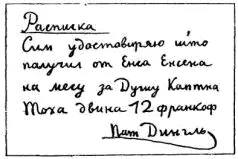 Расписка
Сим удастовиряю што
получил от Енса Енсена
на месу за Душу Каптна
Тоха двина 12 франкоф
Пит Дингль